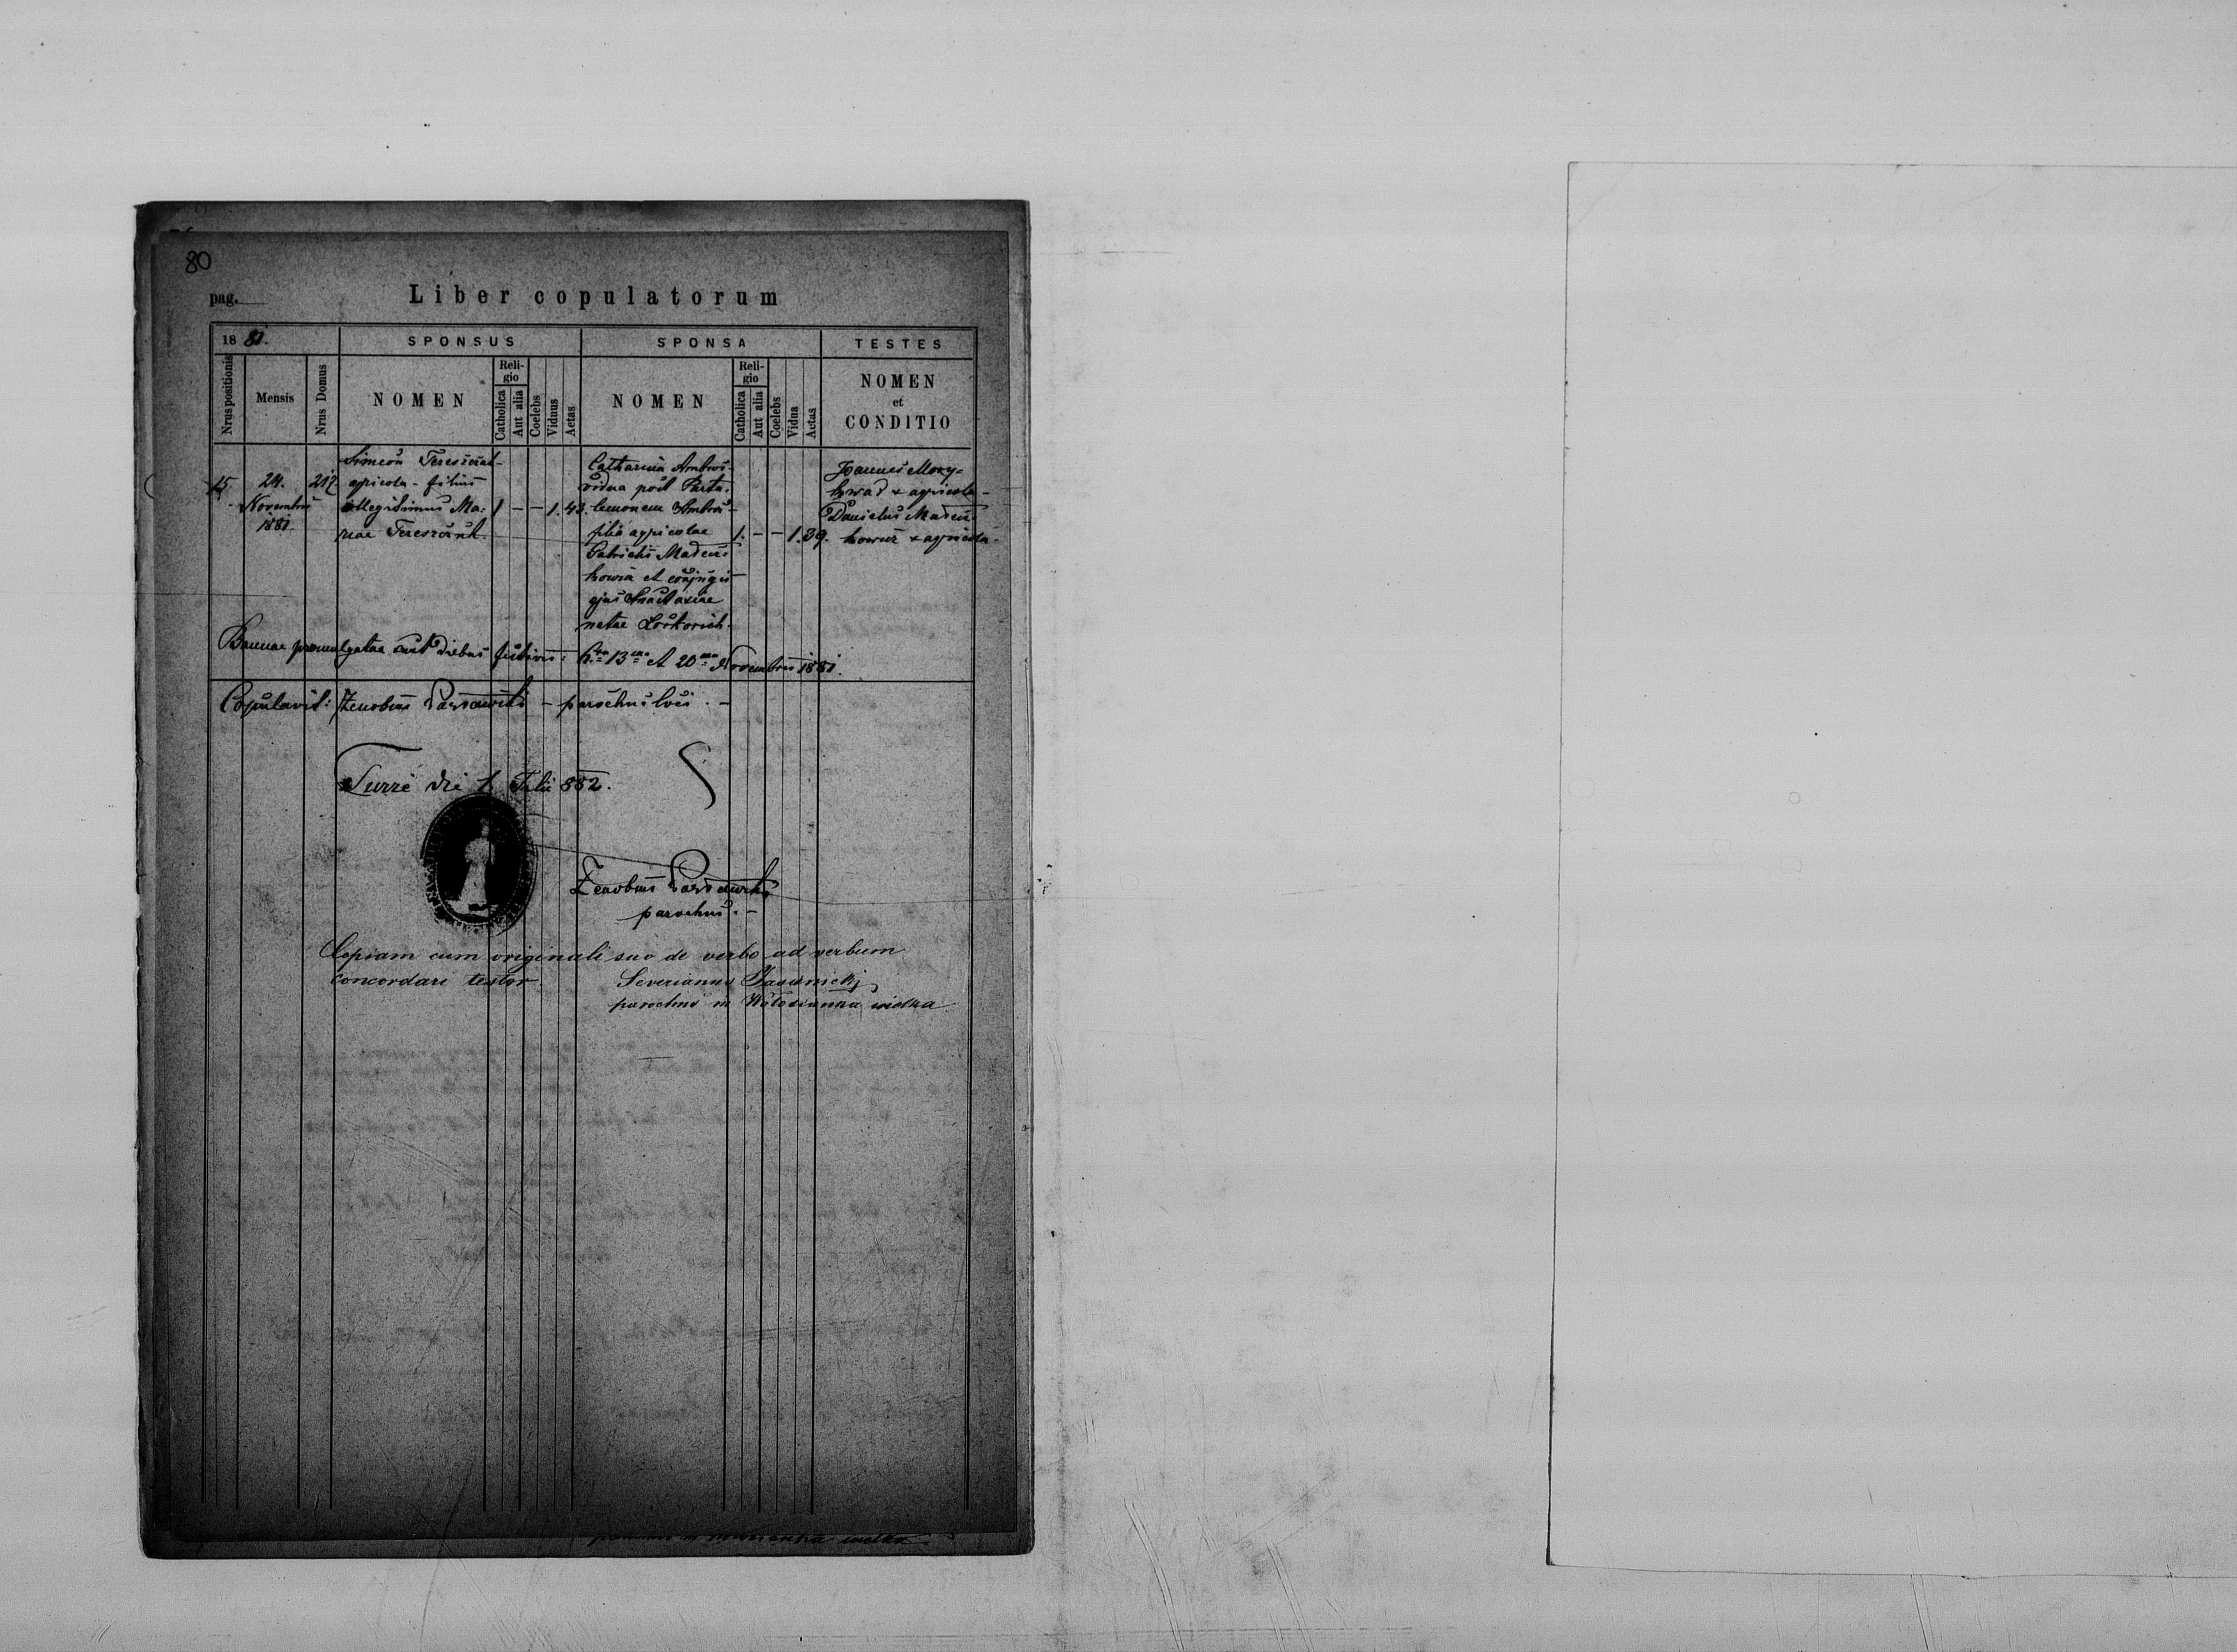 80
pag.
Liber copulatorum
18 81.
SPONSUS
SPONSA
TESTES
Nrus positionis
Mensis
Nrus Domus
NOMEN
Religio
Catholica
Aut alia
Coelebs
Viduus
Aetas
NOMEN
Religio
Catholica
Aut alia
Coelebs
Vidua
Aetas
NOMEN
et
CONDITIO
15
24.
Novembris
1881.
217
Simeon
agricola - filius
illegitimus Ma:
riae
1 - - 1. 43.
Catharina Ambros
vidua post Panta:
lemonem Ambros
filia agricolae
Patricii
et conjugis
ejus Anastasiae
natae
1. - - 1. 39.
Joannes
agricola -
Danielus
agricola -
Bannae promulgatae sunt diebus festivis: 6ta 13ma et 20ma Novembris 1881.
Copulavit: Zenobius - parochus loci. -
Turze die 1 Julii 882.
Zenobius
parochus. -
Copiam cum originali suo de verbo ad verbum
concordare testor.
Severianus Jasienicki
parochus in Wołosianka wielka
wielka